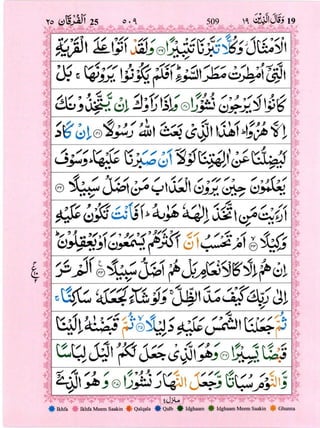 ٢٥ اَلْفُرْقَان 25 ٥٠٩ 509 وَقَالَ الَّذِيْنَ ١٩ 19
الْاَمْثَالَ وَكُلًّا تَبَّرْنَا تَتْبِيْرًا ﴿٣٩﴾ وَلَقَدْ اَتَوْا عَلَى الْقَرْيَةِ
الَّتِيْٓ اُمْطِرَتْ مَطَرَ السَّوْءِ ؕ اَفَلَمْ يَكُوْنُوْا يَرَوْنَهَا ۚ بَلْ
كَانُوْا لَا يَرْجُوْنَ نُشُوْرًا ﴿٤٠﴾ وَاِذَا رَاَوْكَ اِنْ يَّتَّخِذُوْنَكَ
اِلَّا هُزُوًا ؕ اَهٰذَا الَّذِيْ بَعَثَ اللّٰهُ رَسُوْلًا ﴿٤١﴾ اِنْ كَادَ
لَيُضِلُّنَا عَنْ اٰلِهَتِنَا لَوْلَاۤ اَنْ صَبَرْنَا عَلَيْهَا ؕ وَسَوْفَ
يَعْلَمُوْنَ حِيْنَ يَرَوْنَ الْعَذَابَ مَنْ اَضَلُّ سَبِيْلًا ﴿٤٢﴾
اَرَءَيْتَ مَنِ اتَّخَذَ اِلٰهَهٗ هَوٰىهُ ؕ اَفَاَنْتَ تَكُوْنُ عَلَيْهِ
وَكِيْلًا ﴿٤٣﴾ اَمْ تَحْسَبُ اَنَّ اَكْثَرَهُمْ يَسْمَعُوْنَ اَوْ يَعْقِلُوْنَ ؕ
اِنْ هُمْ اِلَّا كَالْاَنْعَامِ بَلْ هُمْ اَضَلُّ سَبِيْلًا ﴿٤٤﴾ اَلَمْ تَرَ
اِلٰى رَبِّكَ كَيْفَ مَدَّ الظِّلَّ ۚ وَلَوْ شَآءَ لَجَعَلَهٗ سَاكِنًا ۚ
ثُمَّ جَعَلْنَا الشَّمْسَ عَلَيْهِ دَلِيْلًا ﴿٤٥﴾ ثُمَّ قَبَضْنٰهُ اِلَيْنَا
قَبْضًا يَّسِيْرًا ﴿٤٦﴾ وَهُوَ الَّذِيْ جَعَلَ لَكُمُ الَّيْلَ لِبَاسًا
وَّالنَّوْمَ سُبَاتًا وَّجَعَلَ النَّهَارَ نُشُوْرًا ﴿٤٧﴾ وَهُوَ الَّذِيْٓ
منزل ٤
Ikhfa Ikhfa Meem Saakin Qalqala Qalb Idghaam Idghaam Meem Saakin Ghunna